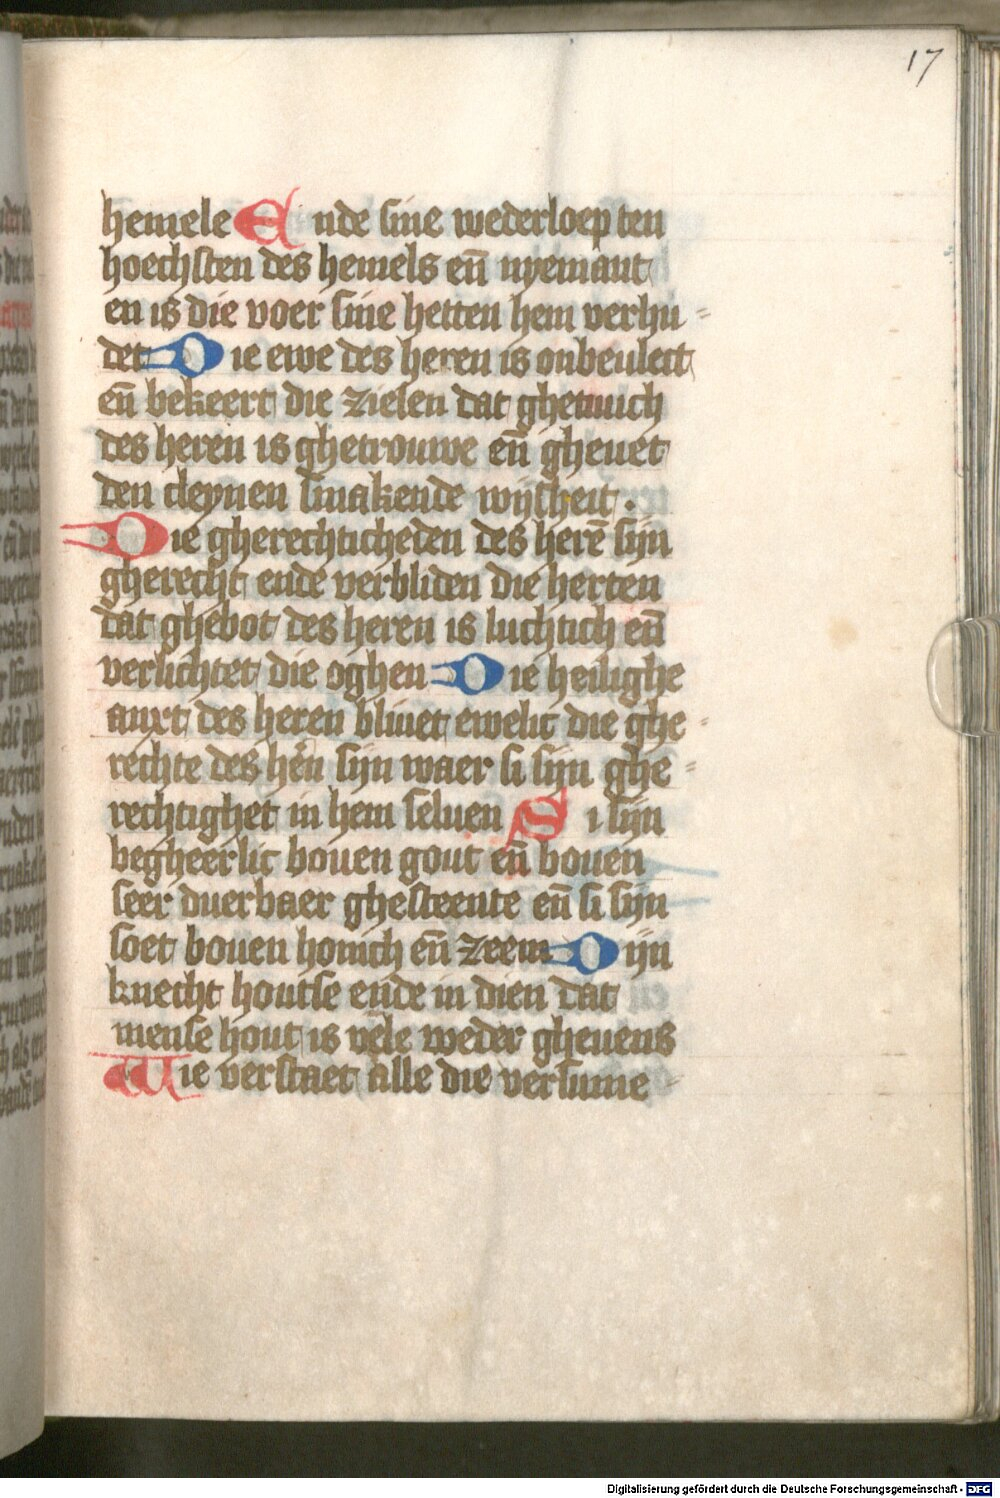 17
hemele Ende sine wederloep ten
hoechsten des hemels eñ nyemant
en is die voer sine hetten hem verhu=
det Die ewe des heren is onbeulect
eñ bekeert die zielen dat ghetuich
des heren is ghetrouwe eñ gheuet
den cleynen smakende wijsheit .
Die gherechticheden des herē sijn
gherecht ende verbliden die herten
dat ghebot des heren is luchtich eñ
verlichtet die oghen Die heilighe
anxt des heren bliuet ewelic die ghe=
rechte des hēn sijn waer si sijn ghe=
rechtighet in hem seluen Si sijn
begheerlic bouen gout eñ bouen
seer duerbaer ghesteente eñ si sijn
soet bouen honich eñ zeem Dijn
knecht houtse ende in dien dat
mense hout is vele weder gheuens
Wie verstaet alle die versume
Digitalisierung gefördert durch die Deutsche Forschungsgemeinschaft - DFG